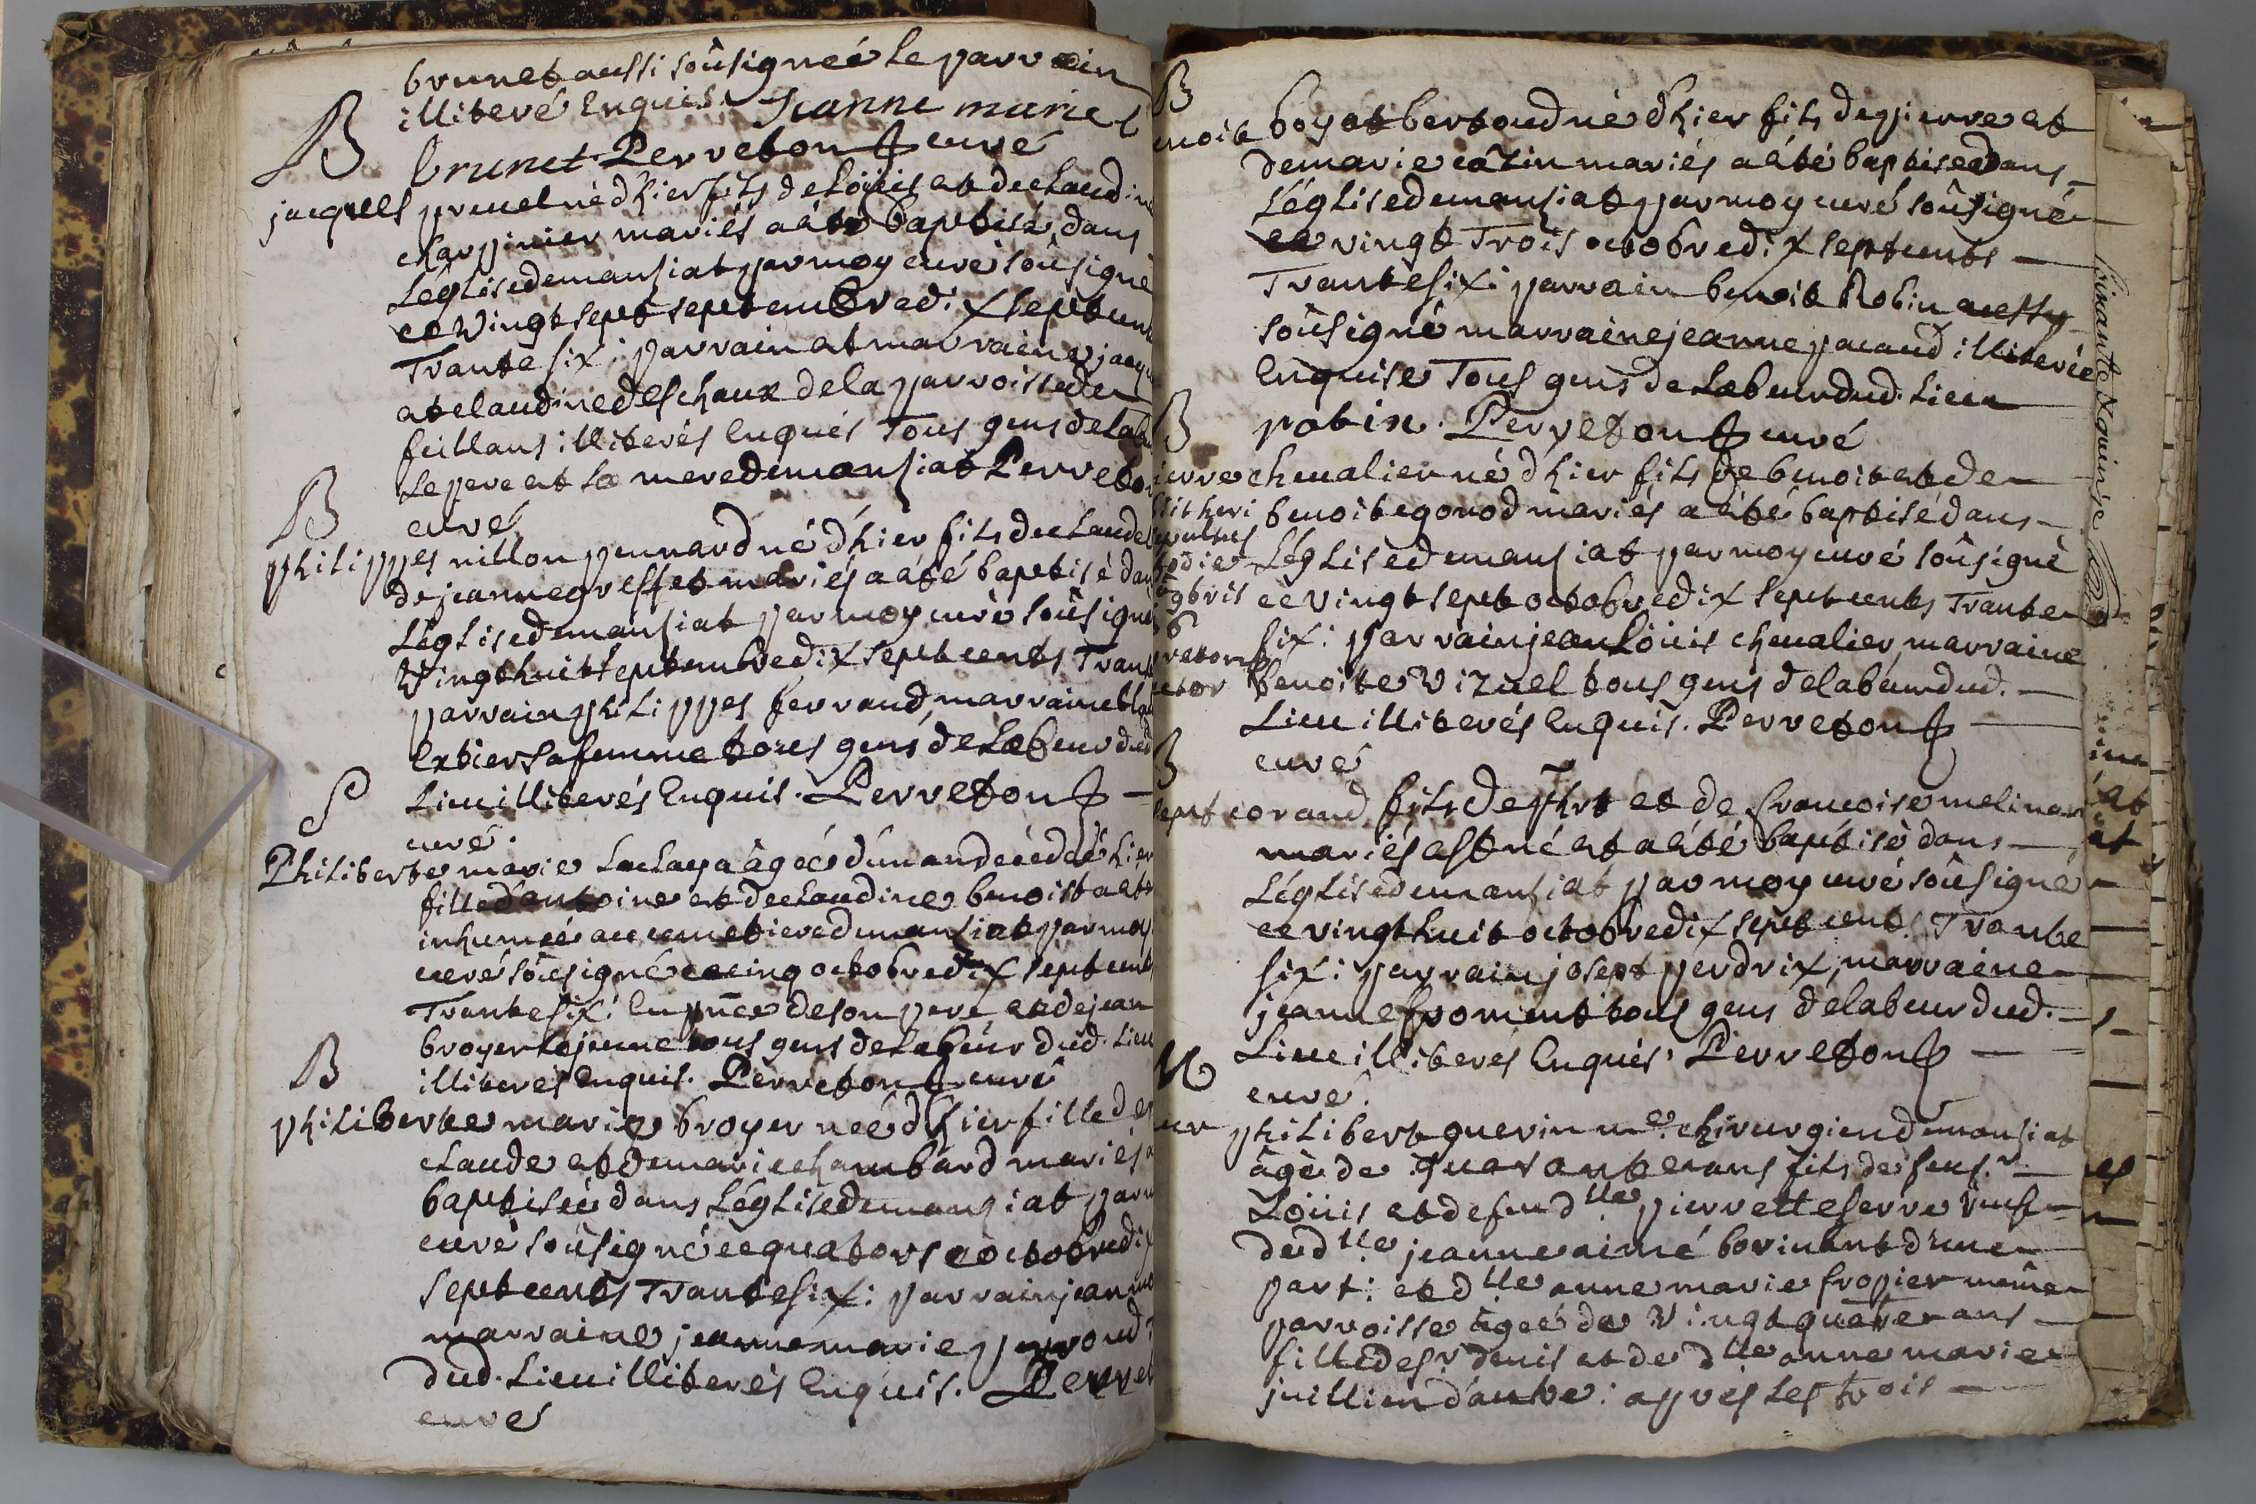 brunet aussi soûsigneé le parrain
illiteré enquis. Jeanne marie
brunet. Perreton curé
B
jacques pruel né d'hier fils de Loüis et de claudine
charpinier mariés a été baptisé dans
L'église de mansiat par moy curé soûsigné
ce vingt sept septembre dix sept cents
Trante six : parrain et marraine jacque
et claudine deschaux de la parroisse de
feillans illiterés enquis Tous gens de labeur
le pere et la mere de mansiat Perreton
curé
B
philippes nillon pennard né d'hier fils de claude
de jeanne gresset mariés a été baptisé dans
L'église de mansiat par moy curé soûsigné
Vingt huit septembre dix sept cents Trante
parrain philippes ferraud, marraine
sa femme tous gens de labeur dud
Lieu illiterés enquis. Perreton
curé.
S
Philiberte marie Laclaya ageé d'un an decedeé hier
fille d'antoine et de claudine benoist a eté
inhumeé au cemetiere de mansiat par moy
curé soûsigné ce cinq octobre dix sept cents
Trante six : en pnce de son pere et de jean
broyer le jeune tous gens de labeur dud. Lieu
illiterés enquis. Perreton curé
B
philiberte marie broyer neé d'hier fille de
claude et de marie chambard mariés a
baptiseé dans L'église de mansiat par
curé soûsigné ce quatorse octobre dix
sept cents Trante six : parrain jean
marraine jeanne marie perroud
dud. Lieu illiterés enquis. Perret
curé
B
benoit boyat bertoud né d'hier fils de pierre et
de marie cazin mariés a été baptisé dans
L'église de mansiat par moy curé soûsigné
ce vingt Trois octobre dix sept cents
Trante six : parrain benoit Robin aussy
soûsigné marraine jeanne pacaud illiterée
enquise Tous gens de labeur dud. Lieu
robin. Perreton curé
B
pierre chevalier né d'hier fils de benoit et de
benoite gonod mariés a été baptisé dans
L'église de mansiat par moy curé soûsigné
ce vingt sept octobre dix sept cents Trante
six : parrain jean Loüis chevalier, marraine
benoite Vizuel tous gens de labeur dud.
Lieu illiterés enquis. Perreton
curé
B
corand fils de phrt et de francoise melinan
mariés est né et a été baptisé dans
L'église de mansiat par moy curé soûsigné
ce vingt huit octobre dix sept cents Trante
six : parrain josept perdrix, marraine
jeanne froment tous gens de labeur dud.
Lieu illiterés enquis. Perreton
curé.
M
philibert guerin me. chirurgien de mansiat
âgé de quarante ans fils de feu sr.
Loüis et de feu dlle pierrette serre veuf
de dlle jeanne aimé borivant d'une
part : et dlle anne marie fropier même
parroisse ageé de Vingt quatre ans
fille de sr denis et de dlle anne marie
juillien d'autre : apres les trois